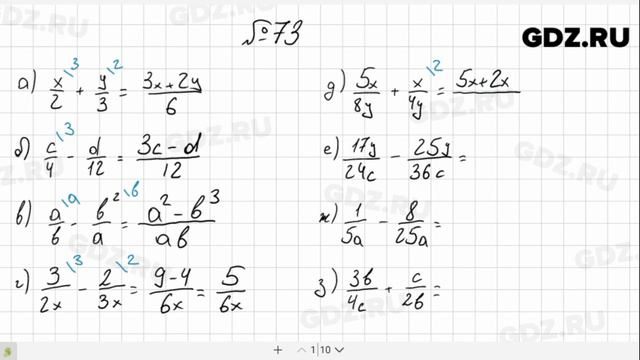 №73
GDZ.RU
а) x/2 \3 + y/3 \2 = 3x+2y/6
б) c/4 \3 - d/12 = 3c-d/12
в) a/b \a - b²/a \b = a²-b³/ab
г) 3/2x \3 - 2/3x \2 = 9-4/6x = 5/6x
д) 5x/8y + x/4y \2 = 5x+2x
е) 17y/24c - 25y/36c =
ж) 1/5a - 8/25a =
з) 3b/4c + c/2b =
1|10